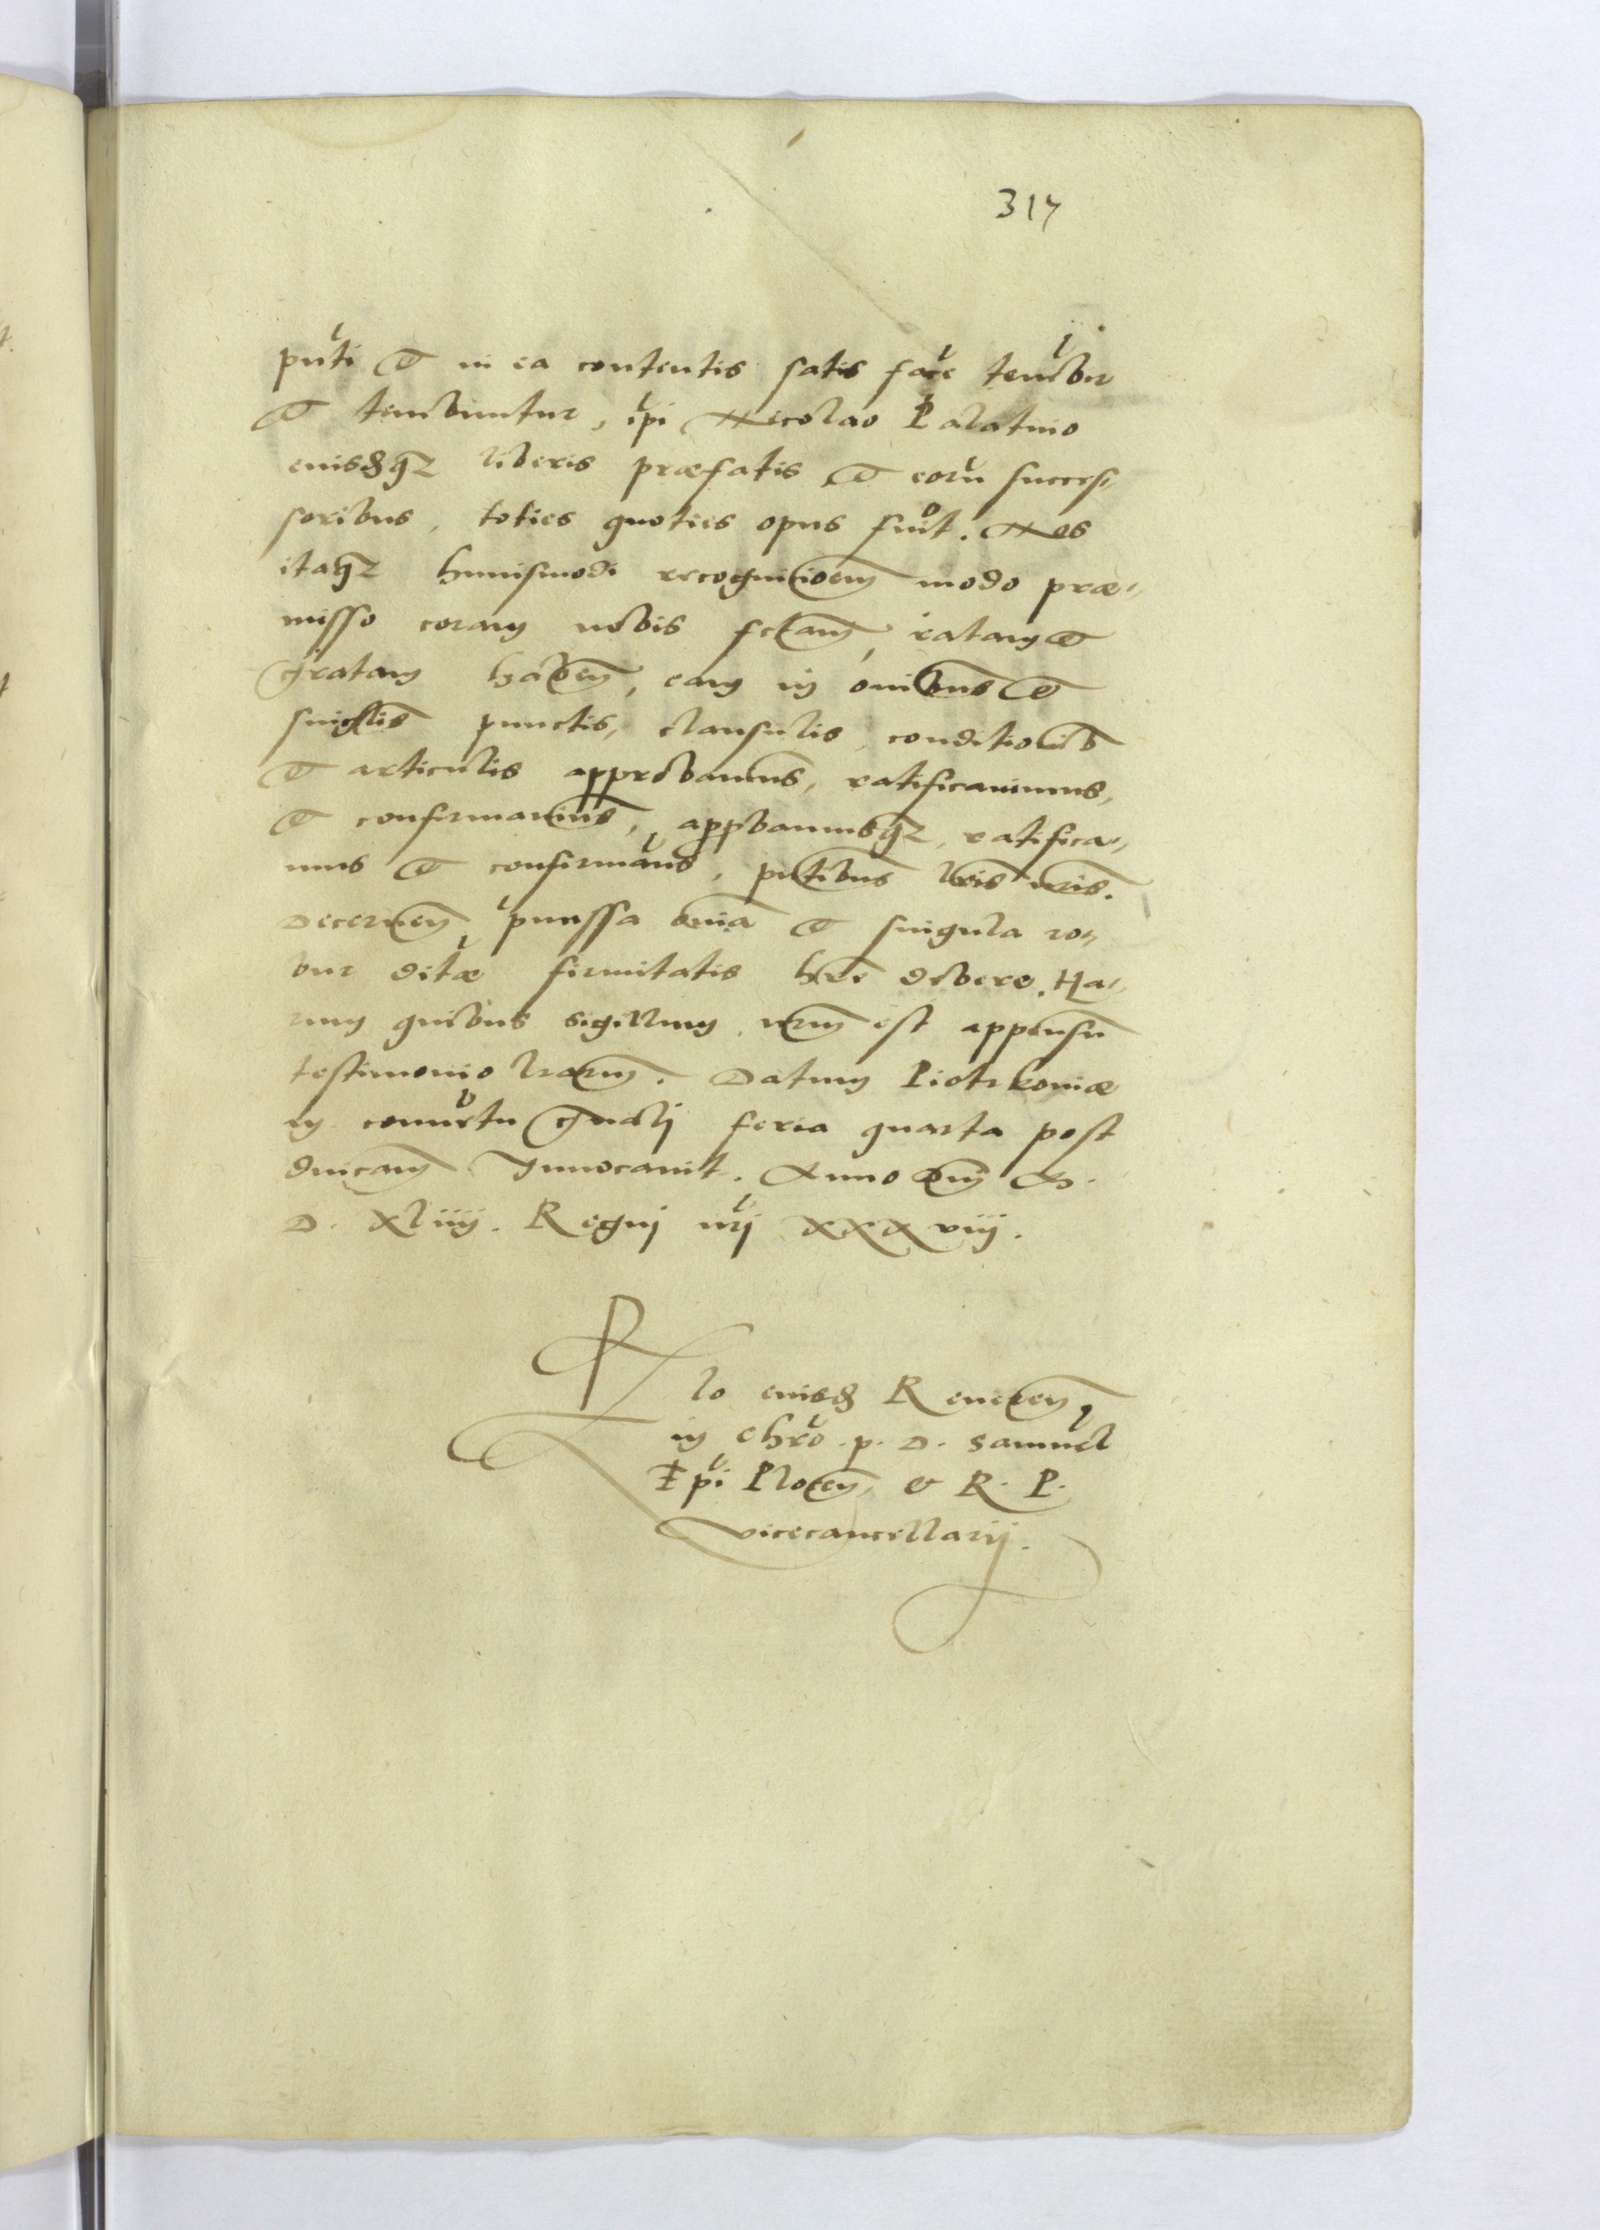 317
pnti et in ea contentis satis face tenebr
et tenebuntur, ipi Nicolao Palatino
eiusdqz liberis præfatis et eoru succes,
soribus, toties quoties opus fuit. Nos
itaqz huiusmodi recognicioem modo præ„
misso coram nobis fctam, ratam et
gratam habem, eam in oibus et
singlis punctis, clausulis, conditioib
et articulis approbauimus, ratificauimus,
et confirmauimus, appbamusqz, ratifica„
mus et confirmans, pntibus lris nris.
Decernem pmissa omia et singula ro„
bur ditæ firmitatis hre debere. Ha„
rum quibus sigillum nrm est appensu
testimonio lrarum. Datum Piotrkouiæ
in conuetu gnali feria quarta post
dnicam Inuocauit. Anno dni M.
D. xliiij. Regni nri xxxviij.
Rlo eiusd Reueren
in Chro p. D. Samuel
Epi Plocen et R. P.
vicecancellarij.